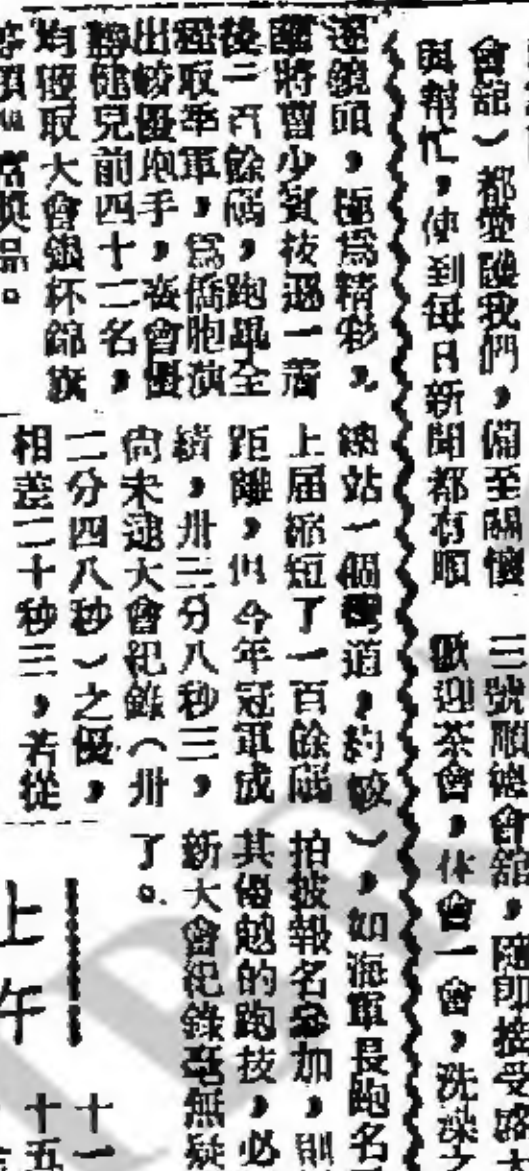 會舘)都愛護我們,備至關懷
與幫忙,使到每日新聞都有順
三號順德會舘,隨即接受
歡迎茶會,休會一會,洗澡之
鏡頭,極爲精彩。
將曹少賓技遏一籌
後二百餘碼,跑畢全
程取季軍,爲僑胞演
出較優跑手,會優
勝健兒前四十二名,
均獲取大會銀杯錦旗
獎品。
終站一個彎道,約較
上届縮短了一百餘碼
距離,但今年冠軍成
績,卅三分八秒三,
尚未逮大會紀錄(卅
二分四八秒)之優,
相差二十秒三,若從
),如海軍長跑名
拍披報名參加,則
其優越的跑技,必
新大會紀錄毫無疑
了。
上午
十一
十五